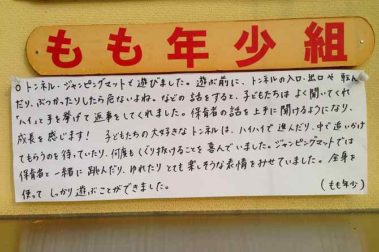 もも年少組
○トンネル・ジャンピングマットで遊びました。遊ぶ前に、トンネルの入口・出口で転ん
だり、ぶつかったりしたら危ないよね。などの話をすると、子どもたちはよく聞いてくれ
"ハイ"と手を挙げて返事をしてくれました。保育者の話を上手に聞けるようになり、
成長を感じます! 子どもたちの大好きなトンネルは、ハイハイで進んだり、中で追いかけ
てもらうのを待っていたり、何度もくぐり抜けることを喜んでいました。ジャンピングマットでは
保育者と一緒に跳んだり、ゆれたりとても楽しそうな表情をみせていました。全身を
使ってしっかり遊ぶことができました。
(もも年少)